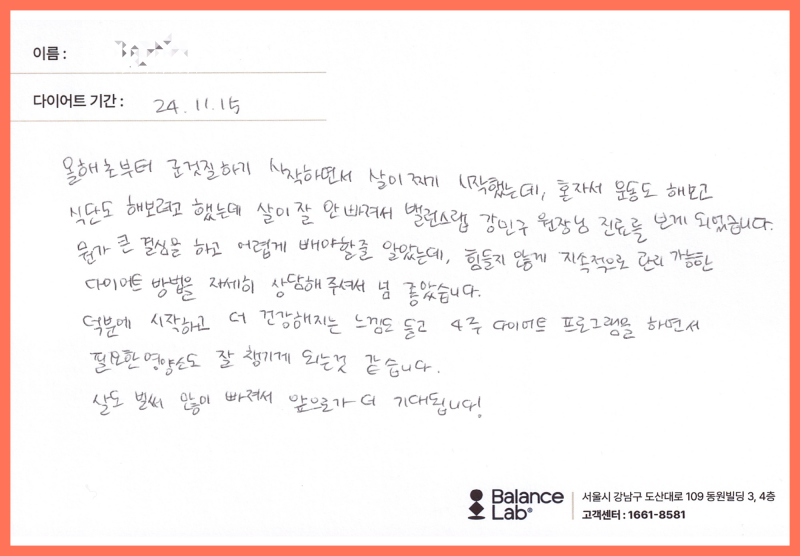 이름 :
다이어트 기간 : 24. 11. 15
올해 초부터 군것질하기 시작하면서 살이 찌기 시작했는데, 혼자서 운동도 해보고
식단도 해보려고 했는데 살이 잘 안 빠져서 밸런스랩 강민구 원장님 진료를 보게 되었습니다.
뭔가 큰 결심을 하고 어렵게 빼야할줄 알았는데, 힘들지 않게 지속적으로 관리 가능한
다이어트 방법을 자세히 상담해 주셔서 넘 좋았습니다.
덕분에 시작하고 더 건강해지는 느낌도 들고 4주 다이어트 프로그램을 하면서
필요한 영양소도 잘 챙기게 되는것 같습니다.
살도 벌써 많이 빠져서 앞으로가 더 기대됩니다!
Balance Lab®
서울시 강남구 도산대로 109 동원빌딩 3, 4층
고객센터 : 1661-8581